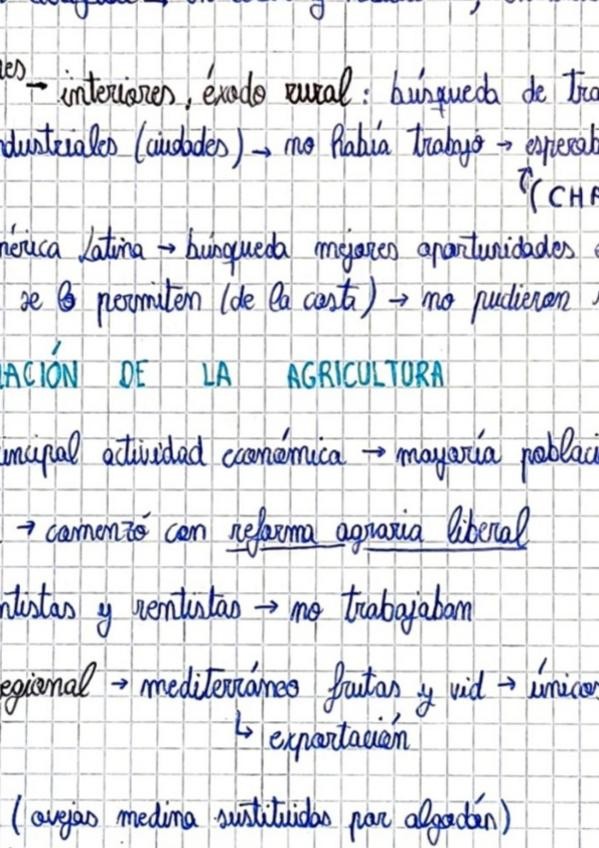 interiores, éxodo rural: búsqueda de tra
dustriales (ciudades) → no había trabajo → esperab
(CHA
mérica Latina → búsqueda mejores oportunidades
se permiten (de la costa) → no pudieron
ACIÓN DE LA AGRICULTURA
incipal actividad económica → mayoría poblaci
→ comenzó con reforma agraria liberal
ntistas y rentistas → no trabajaban
egional → mediterráneo frutas y vid → únicos
↳ exportación
(ovejas medina sustituidas por algodón)